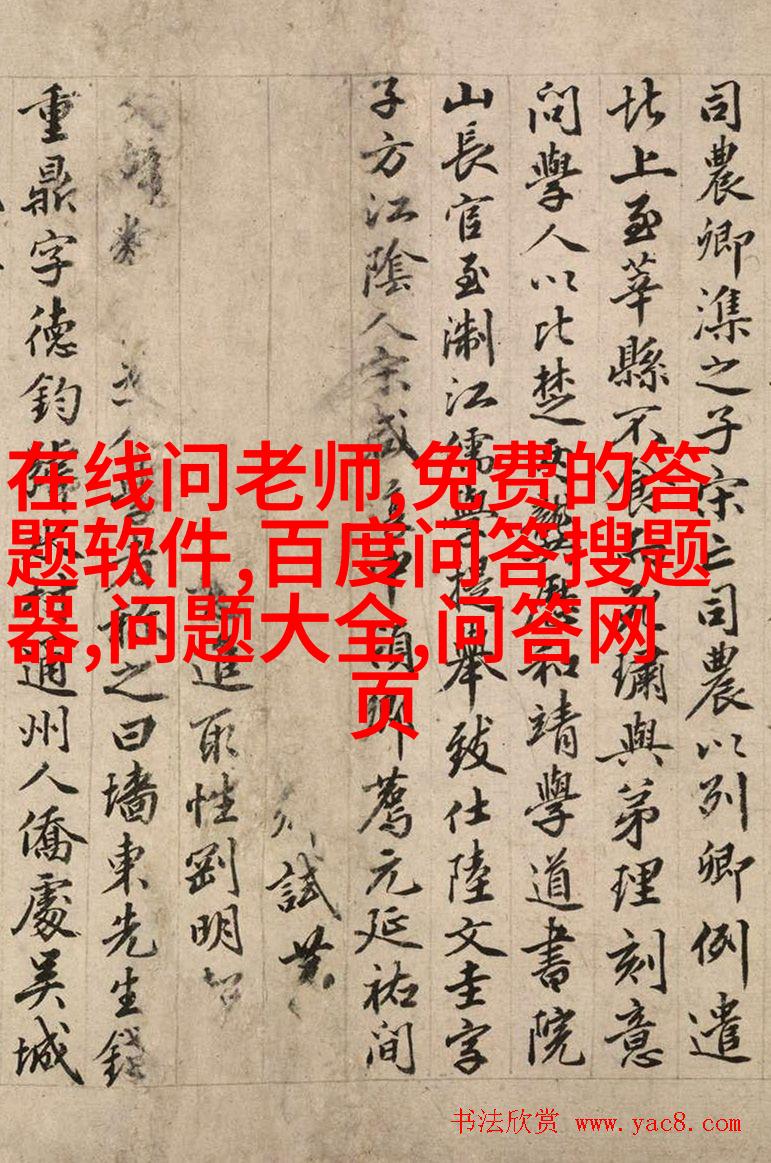 司農卿潗之子宋亡司農以列卿例遣
北上至莘縣不食而死璛與弟理刻意
問學人以比楚两龔歷和靖學道書院
山長官至淛江儒學提舉致仕陸文圭字
子方江陰人宋咸淳中領鄉薦元延祐間
試
造性劉明
稱之曰墻東先生錢
重鼎字德鈞通州人僑處吴城
在线问老师,免费的答
题软件,百度问答搜题
器,问题大全,问答网
页
书法欣赏 www.yac8.com